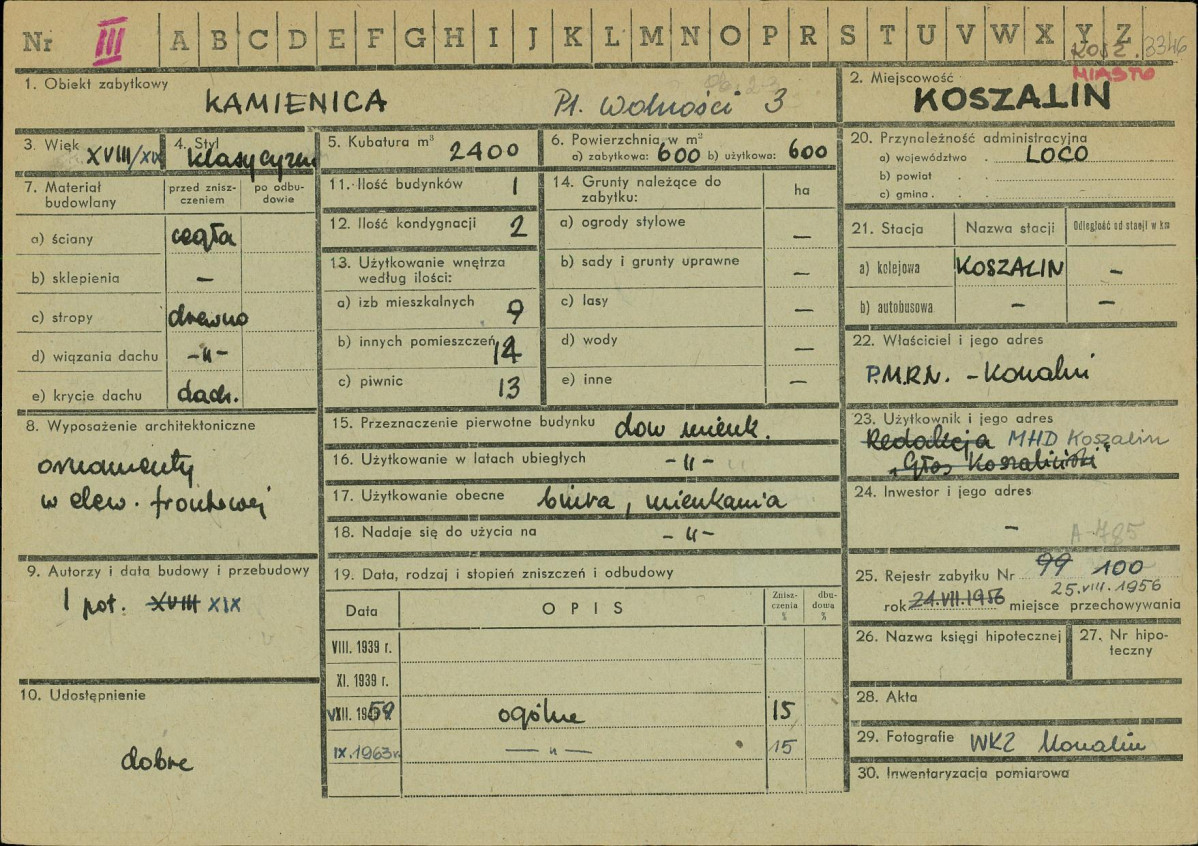 Nr III A B C D E F G H I J K L M N O P R S T U V W X Y Z 3346
KOSZ.
MIASTO
1. Obiekt zabytkowy
KAMIENICA Pl. Wolności 3
2. Miejscowość
KOSZALIN
3. Więk XVIII/XIX
4. Styl klasycyzm
5. Kubatura m³ 2400
6. Powierzchnia w m²
a) zabytkowa: 600 b) użytkowa: 600
20. Przynależność administracyjna
a) województwo LOCO
b) powiat
c) gmina
7. Materiał budowlany
przed znisz-
czeniem
po odbu-
dowie
a) ściany cegła
b) sklepienia —
c) stropy drewno
d) wiązania dachu -"-
e) krycie dachu dach.
11. Ilość budynków 1
12. Ilość kondygnacji 2
13. Użytkowanie wnętrza
według ilości:
a) izb mieszkalnych 9
b) innych pomieszczeń
c) piwnic 13
14. Grunty należące do
zabytku:
ha
a) ogrody stylowe —
b) sady i grunty uprawne —
c) lasy —
d) wody —
e) inne —
21. Stacja Nazwa stacji Odległość od stacji w km
a) kolejowa KOSZALIN —
b) autobusowa — —
22. Właściciel i jego adres
P.M.R.N. - Koszalin
8. Wyposażenie architektoniczne
ornamenty
w elew. frontowej
15. Przeznaczenie pierwotne budynku dom mieszk.
16. Użytkowanie w latach ubiegłych -"-
17. Użytkowanie obecne biura, mieszkania
18. Nadaje się do użycia na -"-
23. Użytkownik i jego adres
Redakcja MHD Koszalin
"Głos Koszaliński"
24. Inwestor i jego adres
—
A-785
9. Autorzy i data budowy i przebudowy
1 poł. XVIII XIX
19. Data, rodzaj i stopień zniszczeń i odbudowy
Data OPIS
Znisz-
czenia
%
dbu-
dowa
%
VIII. 1939 r.
XI. 1939 r.
59 ogólne 15
IX. 1963 r. — " — 15
25. Rejestr zabytku Nr 99 100
25.VIII.1956
rok 24.VII.1956 miejsce przechowywania
26. Nazwa księgi hipotecznej
27. Nr hipo-
teczny
10. Udostępnienie
dobre
28. Akta
29. Fotografie WKZ Koszalin
30. Inwentaryzacja pomiarowa